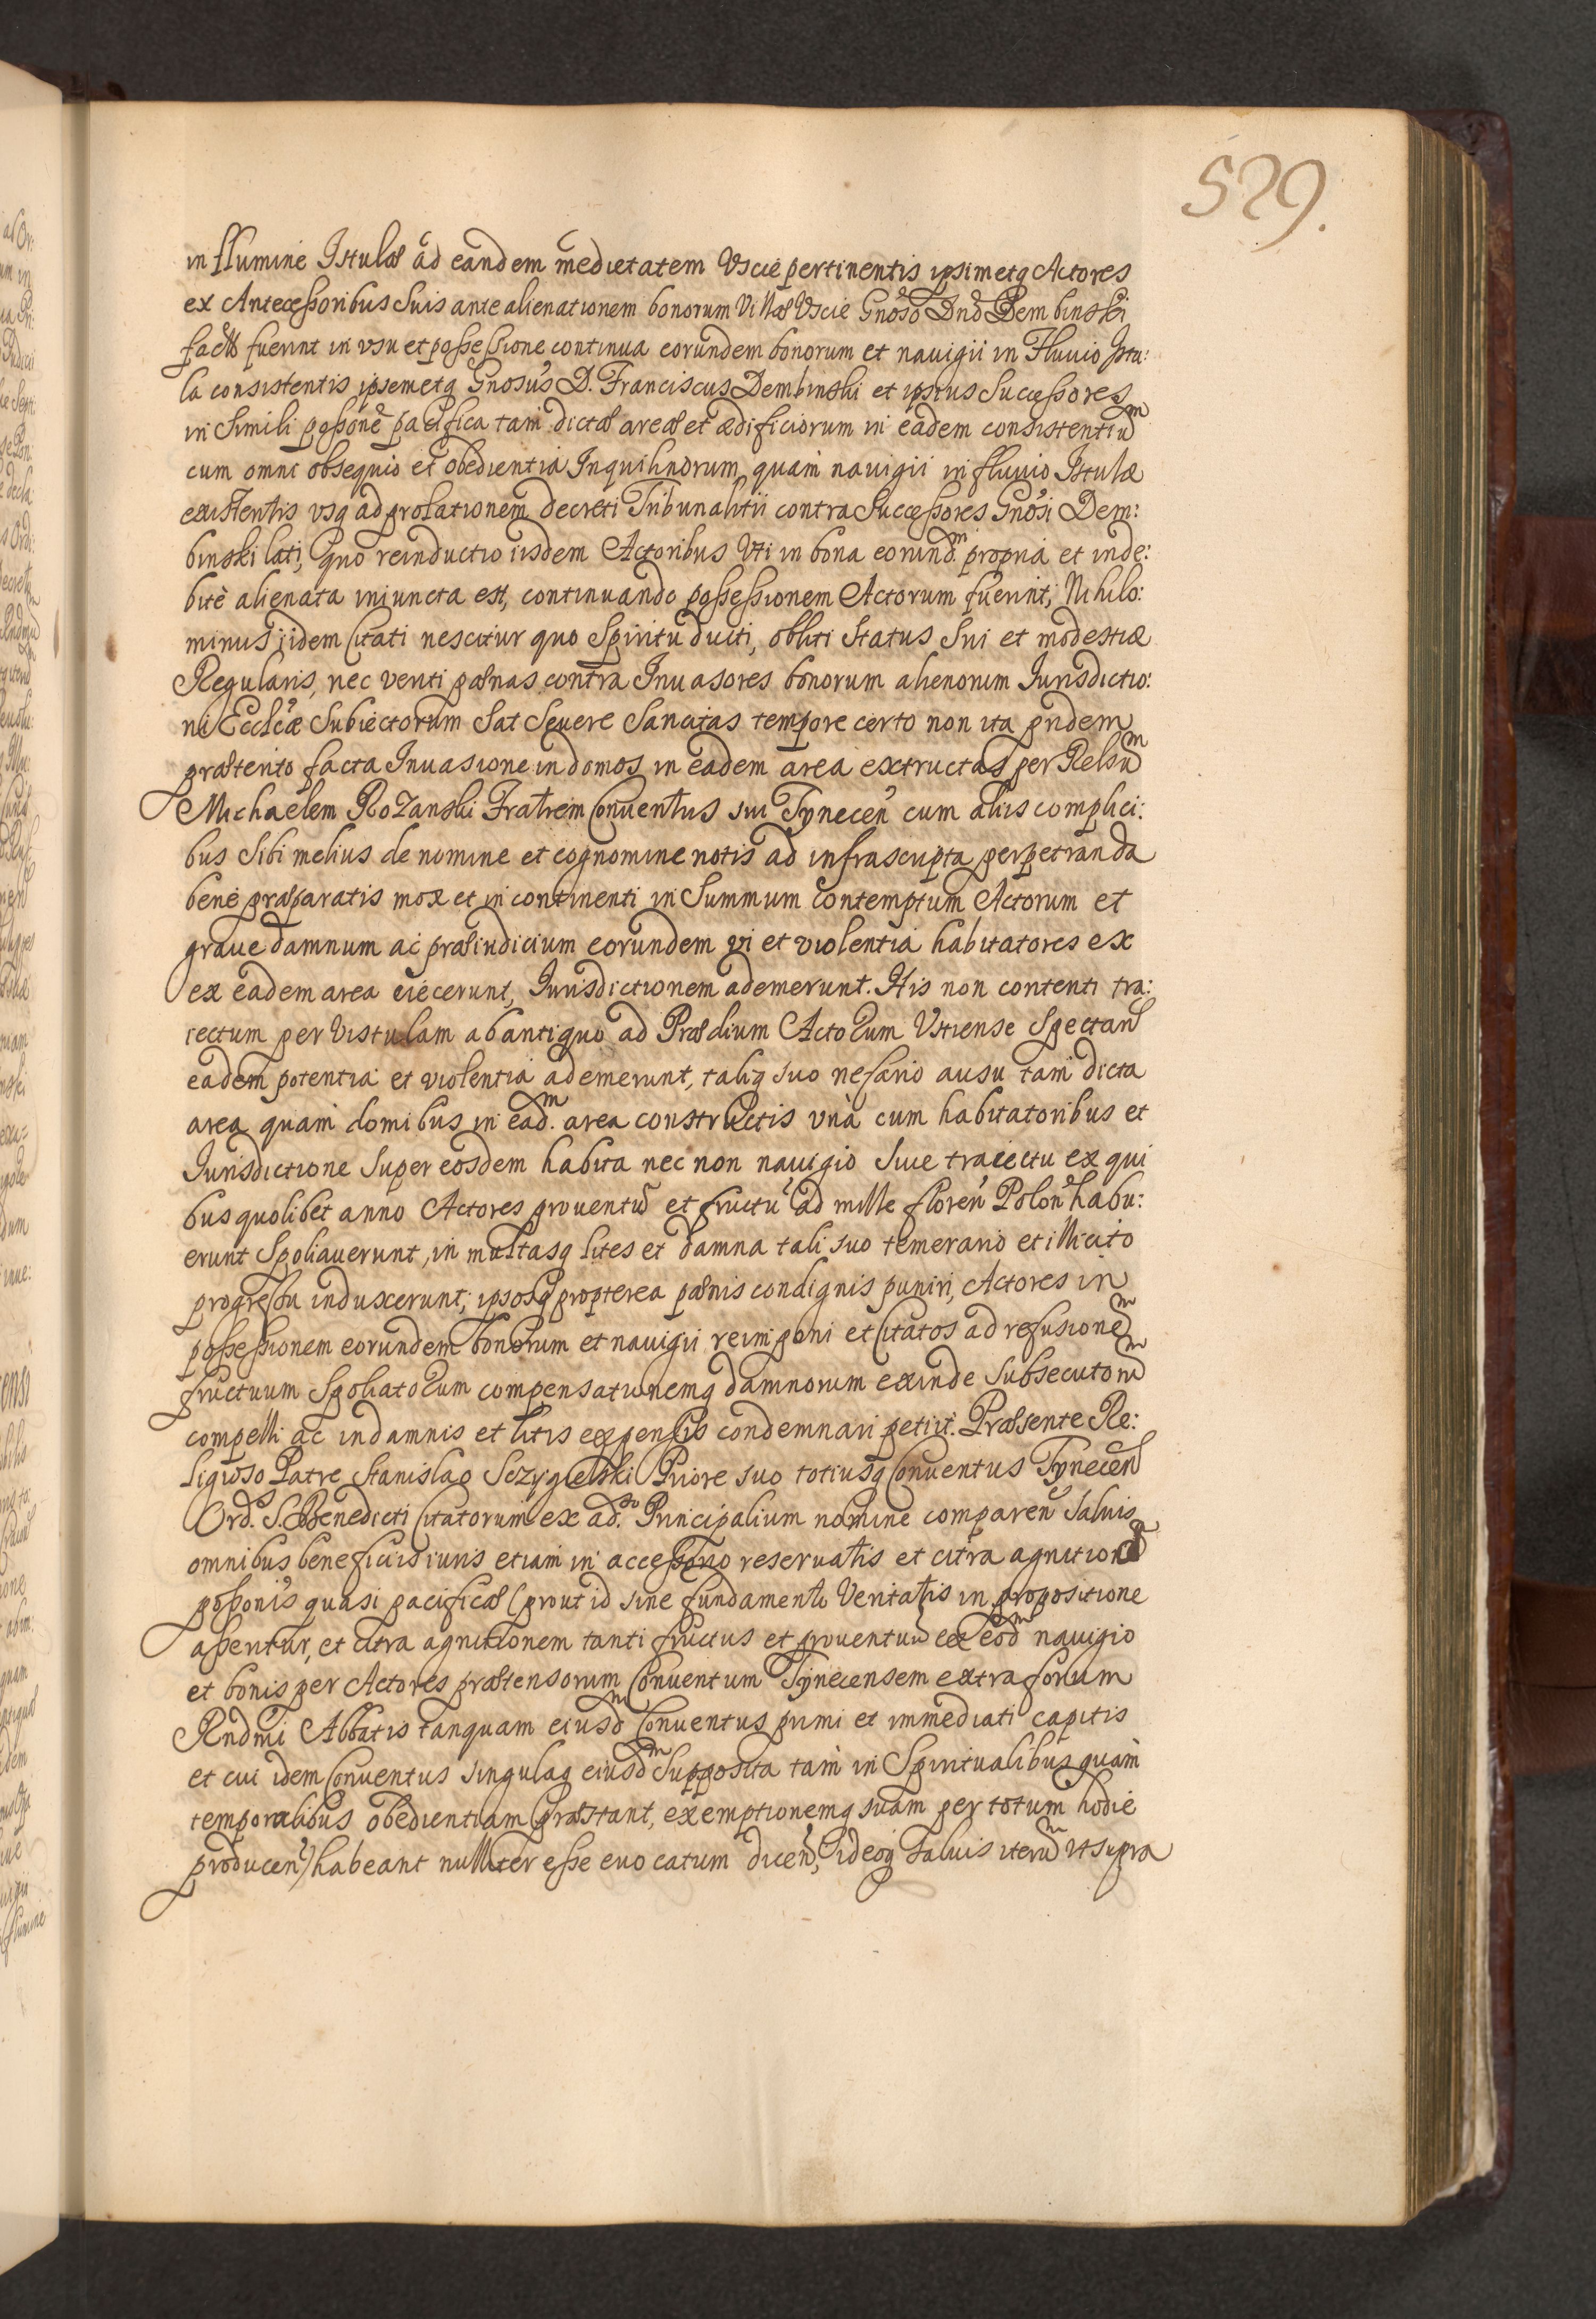 529.
in flumine Istulæ ad eandem medietatem Uscie pertinentis ipsimetq Actores
ex Antecessoribus Suis ante alienationem bonorum Villæ Uscie Gnoso Dno Dembinski
factæ fuerint in usu et possessione continua eorundem bonorum et nauigii in Fluuio Istu:
la consistentis ipsemetq Gnosus D. Franciscus Dembinski et ipsius Successores
in Simili possone pacifica tam dictæ areæ et ædificiorum in eadem consistentium
cum omni obsequio et obedientia Inquilinorum quam nauigii in fluuio Istulæ
existentis usq ad prolationem decreti Tribunalitii contra Successores Gnosi Dem:
binski lati, quo reinductio iisdem Actoribus Uti in bona eorundm propria et inde:
bitè alienata iniuncta est, continuando possessionem Actorum fuerint, Nihilo:
minus iidem Citati nescitur quo Spiritu ducti, obliti Status Sui et modestiæ
Regularis, nec veriti pœnas contra Inuasores bonorum alienorum Iurisdictio:
ni Ecclcæ Subiectorum Sat Seuere Sancitas tempore certo non ita pridem
præterito facta Inuasione in domos in eadem area extructas per Relsum
Michaelem Rozanski Fratrem Conuentus sui Tynecen cum aliis complici:
bus Sibi melius de nomine et cognomine notis ad infrascripta perpetranda
bene præparatis mox et in continenti in Summum contemptum Actorum et
graue damnum ac præiudicium eorundem vi et violentia habitatores ex
ex eadem area eiecerunt, Iurisdictionem ademerunt. His non contenti tra:
iectum per Vistulam ab antiquo ad Prædium Actorum Ustiense Spectan
eadem potentia et violentia ademerunt, taliq suo nefario ausu tam dicta
area quam domibus in eadm. area constructis unà cum habitatoribus et
Iurisdictione Super eosdem habita nec non nauigio Siue traiectu ex qui
bus quolibet anno Actores prouentũ et fructũ ad mille floren Polon habu:
erunt Spoliauerunt, in multasq lites et damna tali suo temerario et illicito
progressu induxerunt; ipsosq propterea pœnis condignis puniri, Actores in
possessionem eorundem bonorum et nauigii reimponi et Citatos ad refusionem
fructuum Spoliatorum compensationemq damnorum exinde Subsecutorum
compelli ac in damnis et litis expensis condemnari petiit. Præsente Re:
ligioso Patre Stanislao Sczygielski Priore suo totiusq Conuentus Tynecen
Ord. S. Benedicti Citatorum ex ado. Principalium nomine comparen Saluis
omnibus beneficiis iuris etiam in accessorio reseruatis et citra agnitionem
possonis quasi pacificæ (prout id sine fundamento Veritatis in propositione
asseritur, et citra agnitionem tanti fructus et prouentuũ ex eodm nauigio
et bonis per Actores prætensorum Conuentum Tynecensem extra forum
Rndmi Abbatis tanquam eiusdm Conuentus primi et immediati capitis
et cui idem Conuentus singulaq eiusdm Supposita tam in Spiritualibus quam
temporalibus obedientiam præstant, exemptionemq suam per totum hodie
producen) habeant nulliter esse euocatum dicen, ideoq Saluis iterum ut supra